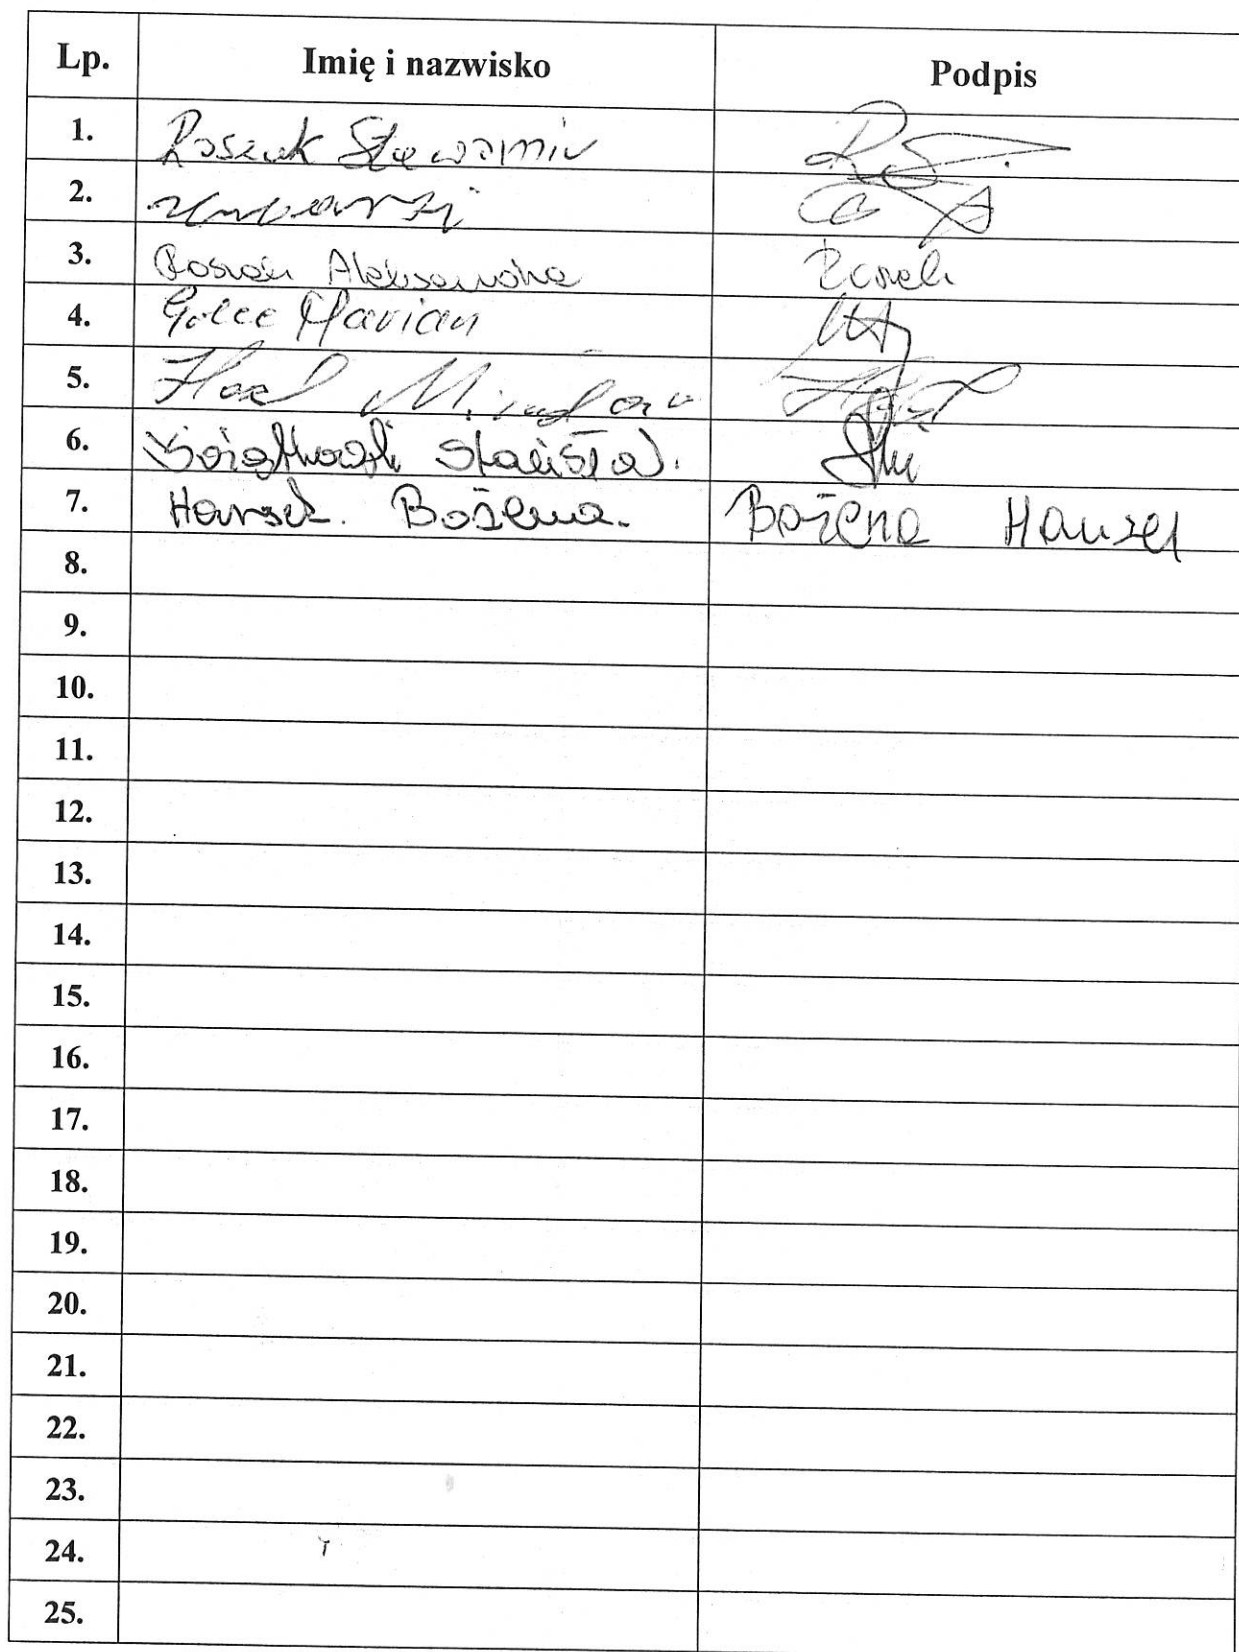 Lp. Imię i nazwisko Podpis
1. Roszak Sławomir
2.
3. Roszak Aleksandra Roszak
4. Golec Marian
5.
6. Stanisław.
7. Hanzel. Bożena. Bożena Hanzel
8.
9.
10.
11.
12.
13.
14.
15.
16.
17.
18.
19.
20.
21.
22.
23.
24.
25.